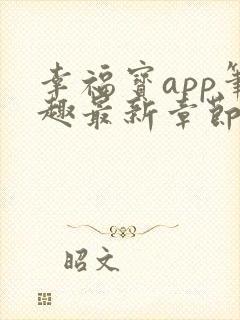 幸福寳app筆
趣最新章節
昭文